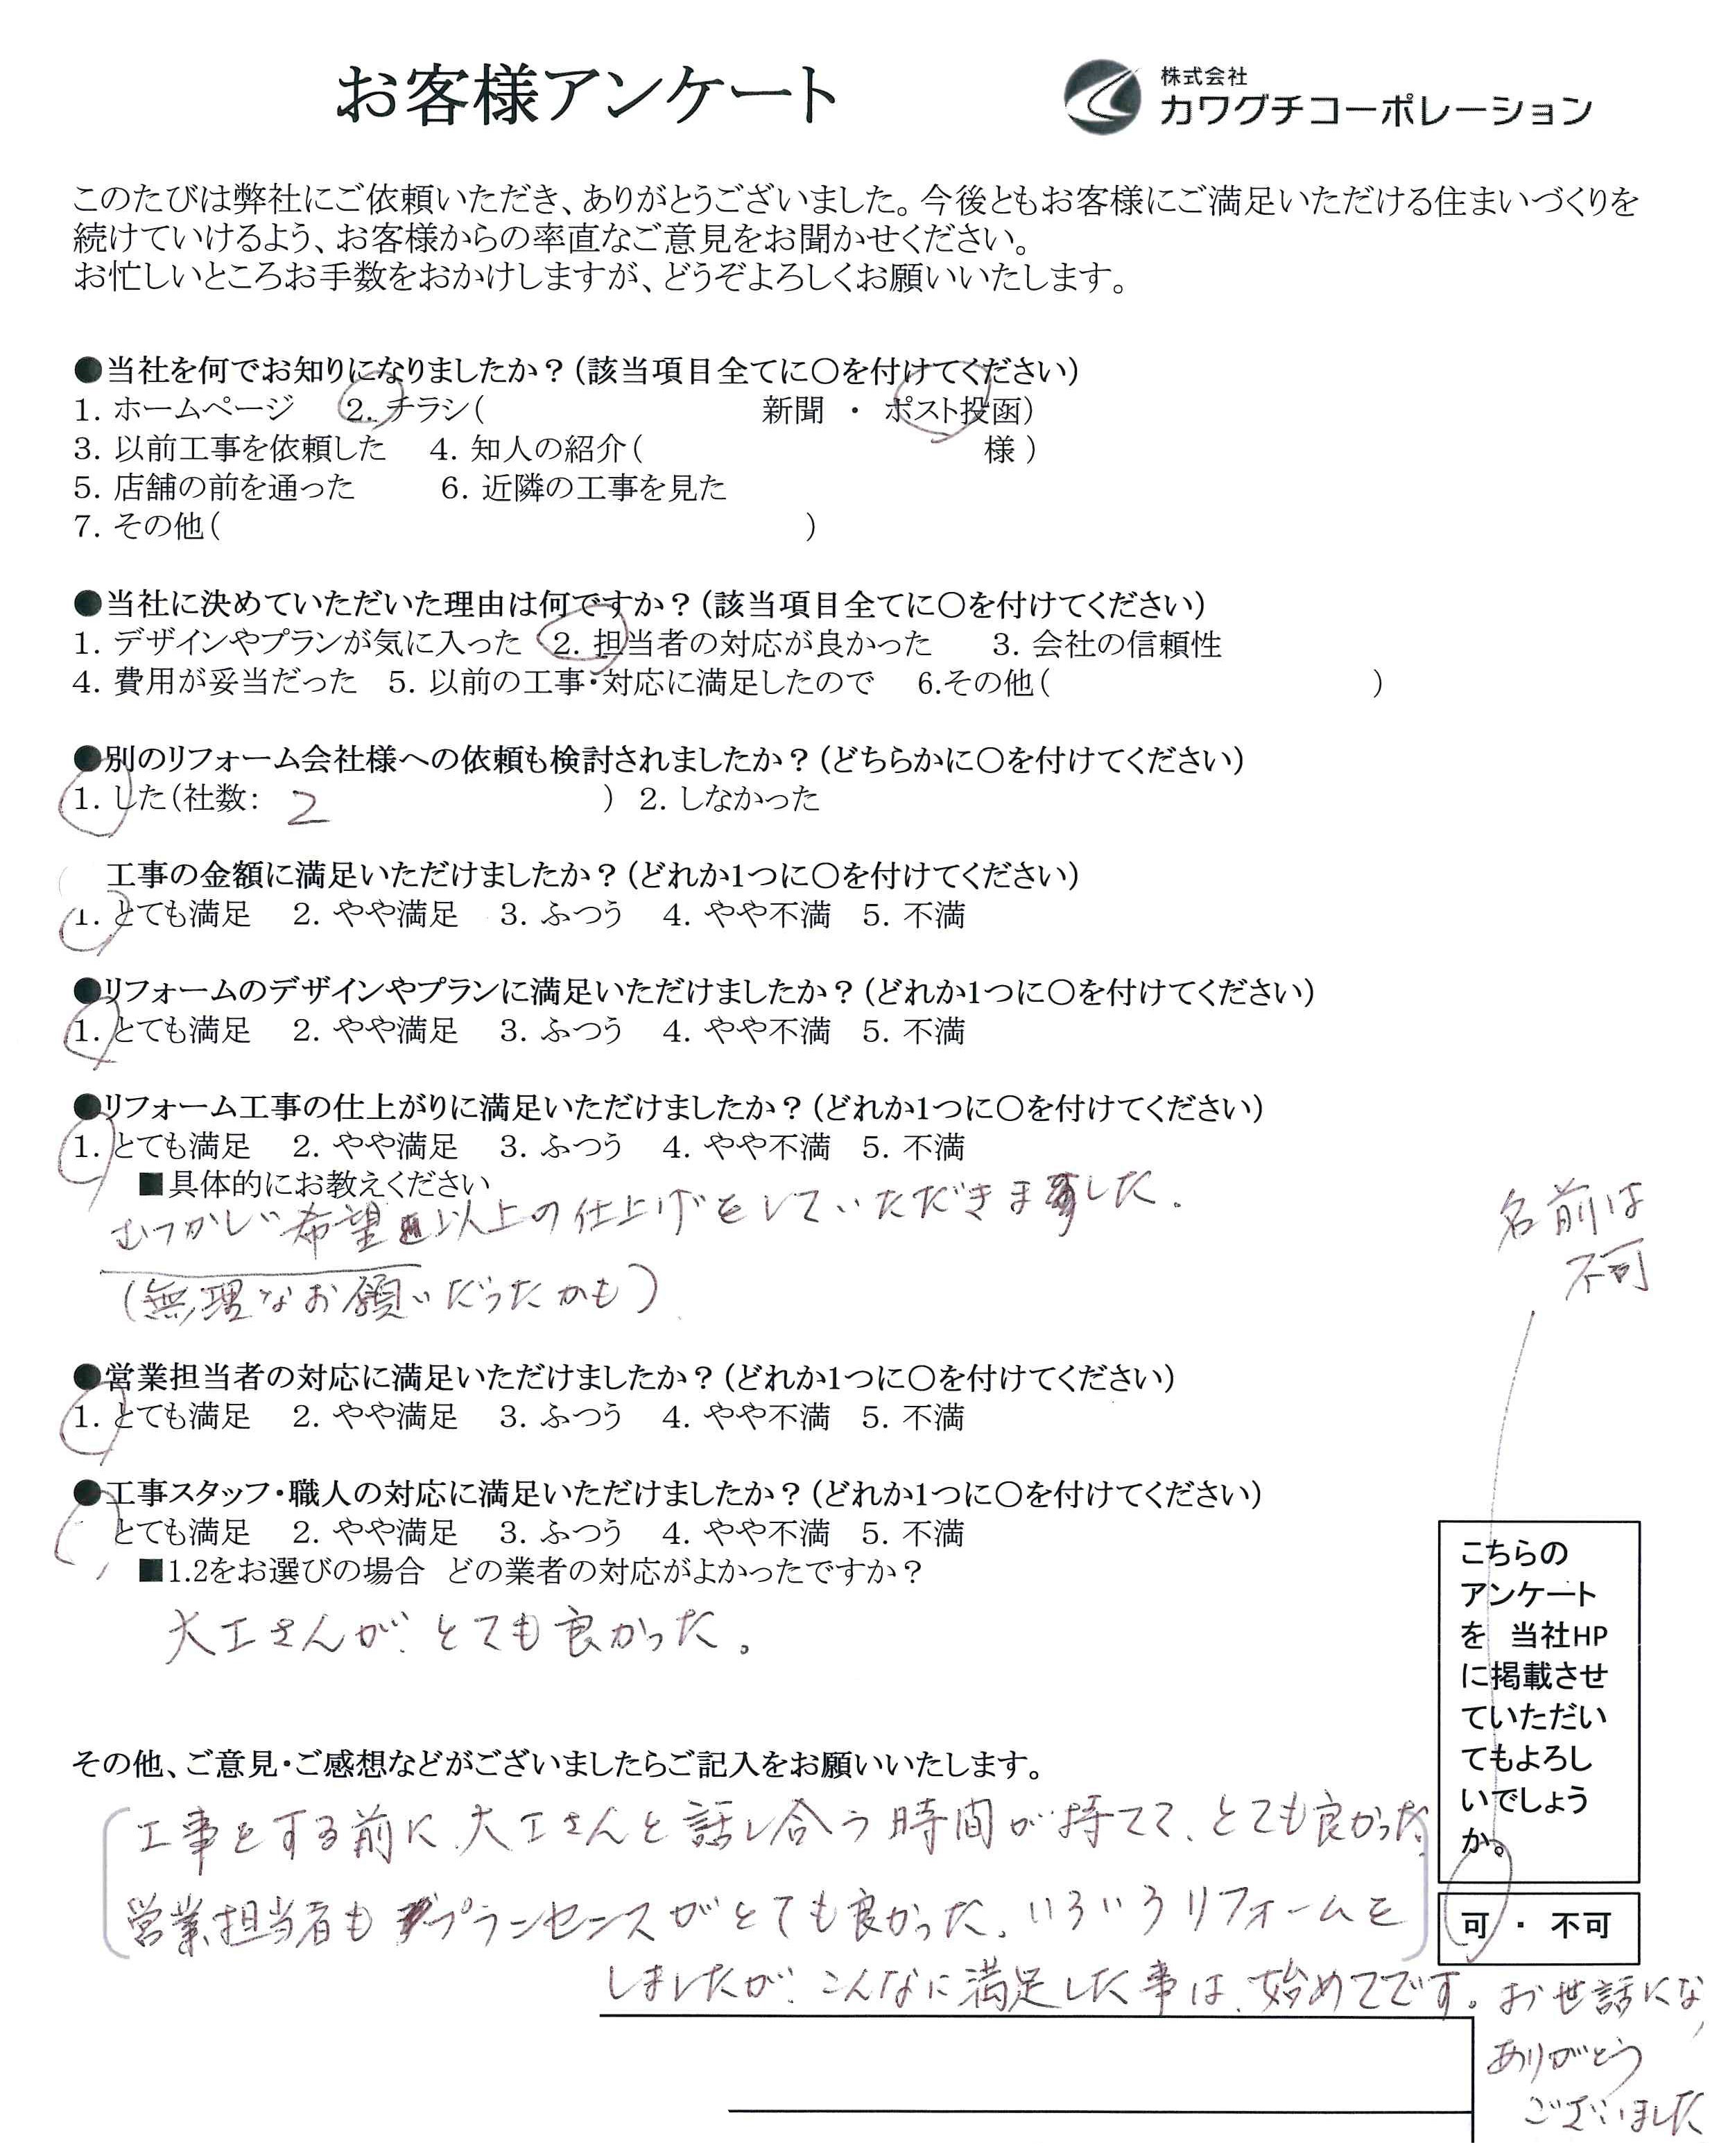 お客様アンケート
株式会社
カワグチコーポレーション
このたびは弊社にご依頼いただき、ありがとうございました。今後ともお客様にご満足いただける住まいづくりを
続けていけるよう、お客様からの率直なご意見をお聞かせください。
お忙しいところお手数をおかけしますが、どうぞよろしくお願いいたします。
●当社を何でお知りになりましたか？（該当項目全てに○を付けてください）
1. ホームページ 2. チラシ（ 新聞 ・ ポスト投函）
3. 以前工事を依頼した 4. 知人の紹介（ 様 ）
5. 店舗の前を通った 6. 近隣の工事を見た
7. その他（ ）
●当社に決めていただいた理由は何ですか？（該当項目全てに○を付けてください）
1. デザインやプランが気に入った 2. 担当者の対応が良かった 3. 会社の信頼性
4. 費用が妥当だった 5. 以前の工事・対応に満足したので 6.その他（ ）
●別のリフォーム会社様への依頼も検討されましたか？（どちらかに○を付けてください）
1. した（社数： 2 ） 2. しなかった
工事の金額に満足いただけましたか？（どれか1つに○を付けてください）
1. とても満足 2. やや満足 3. ふつう 4. やや不満 5. 不満
●リフォームのデザインやプランに満足いただけましたか？（どれか1つに○を付けてください）
1. とても満足 2. やや満足 3. ふつう 4. やや不満 5. 不満
●リフォーム工事の仕上がりに満足いただけましたか？（どれか1つに○を付けてください）
1. とても満足 2. やや満足 3. ふつう 4. やや不満 5. 不満
■具体的にお教えください
むつかしい希望以上の仕上げをしていただきました。
（無理なお願いだったかも）
名前は
不可
●営業担当者の対応に満足いただけましたか？（どれか1つに○を付けてください）
1. とても満足 2. やや満足 3. ふつう 4. やや不満 5. 不満
●工事スタッフ・職人の対応に満足いただけましたか？（どれか1つに○を付けてください）
とても満足 2. やや満足 3. ふつう 4. やや不満 5. 不満
■1.2をお選びの場合 どの業者の対応がよかったですか？
大工さんが、とても良かった。
その他、ご意見・ご感想などがございましたらご記入をお願いいたします。
工事をする前に、大工さんと話し合う時間が持てて、とても良かった。
営業担当者もプランセンスがとても良かった。いろいろリフォームを
しましたが、こんなに満足した事は、始めてです。お世話にな
ありがとう
ございました
こちらの
アンケート
を 当社HP
に掲載させ
ていただい
てもよろし
いでしょう
か。
可 ・ 不可